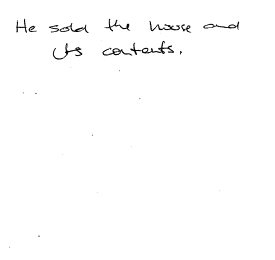 He sold the house and
its contents.